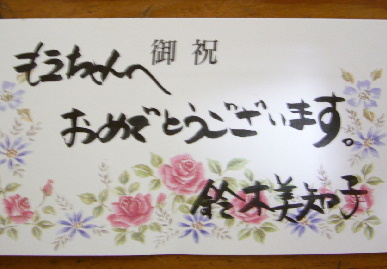 御祝
もうちゃんへ
おめでとうございます。
鈴木美知子